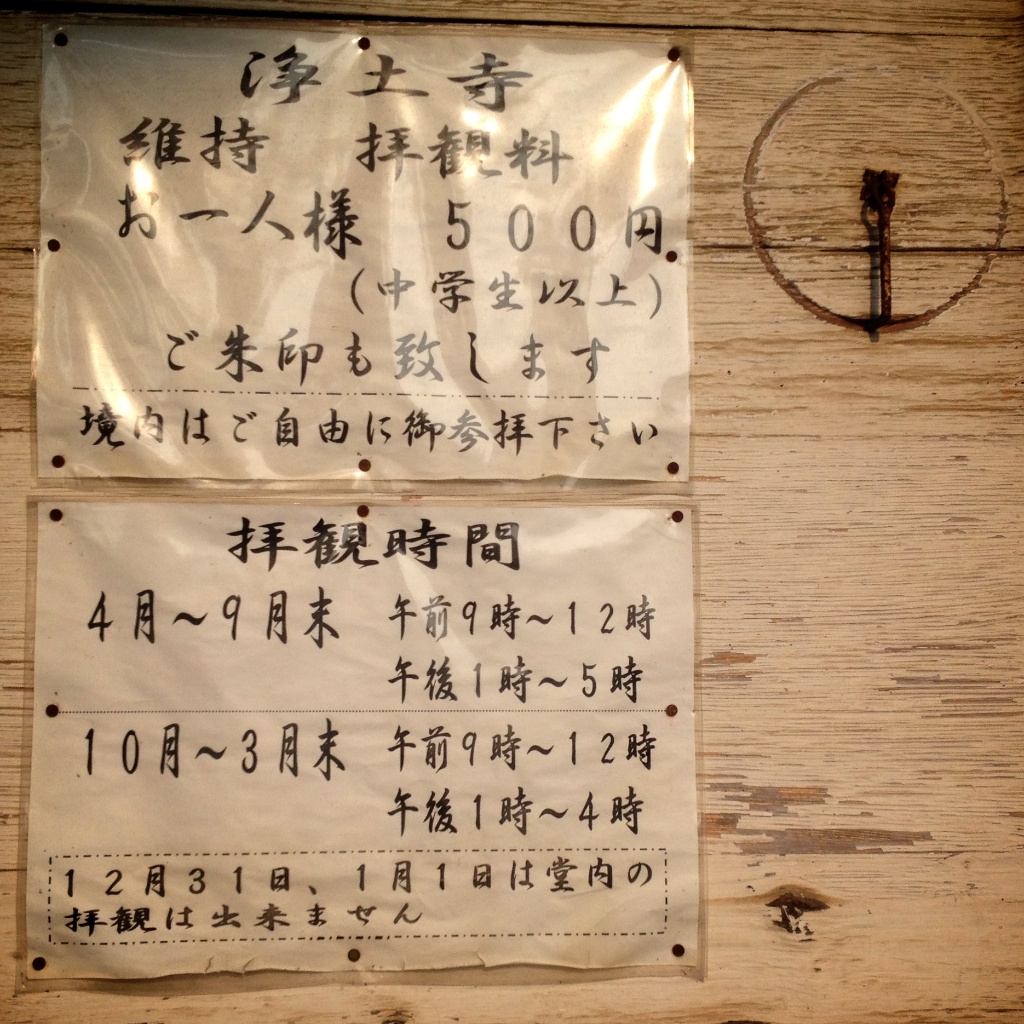 浄土寺
維持　拝観料
お一人様　５００円
（中学生以上）
ご朱印も致します
境内はご自由に御参拝下さい
拝観時間
４月～９月末　午前９時～１２時
午後１時～５時
１０月～３月末　午前９時～１２時
午後１時～４時
１２月３１日、１月１日は堂内の
拝観は出来ません